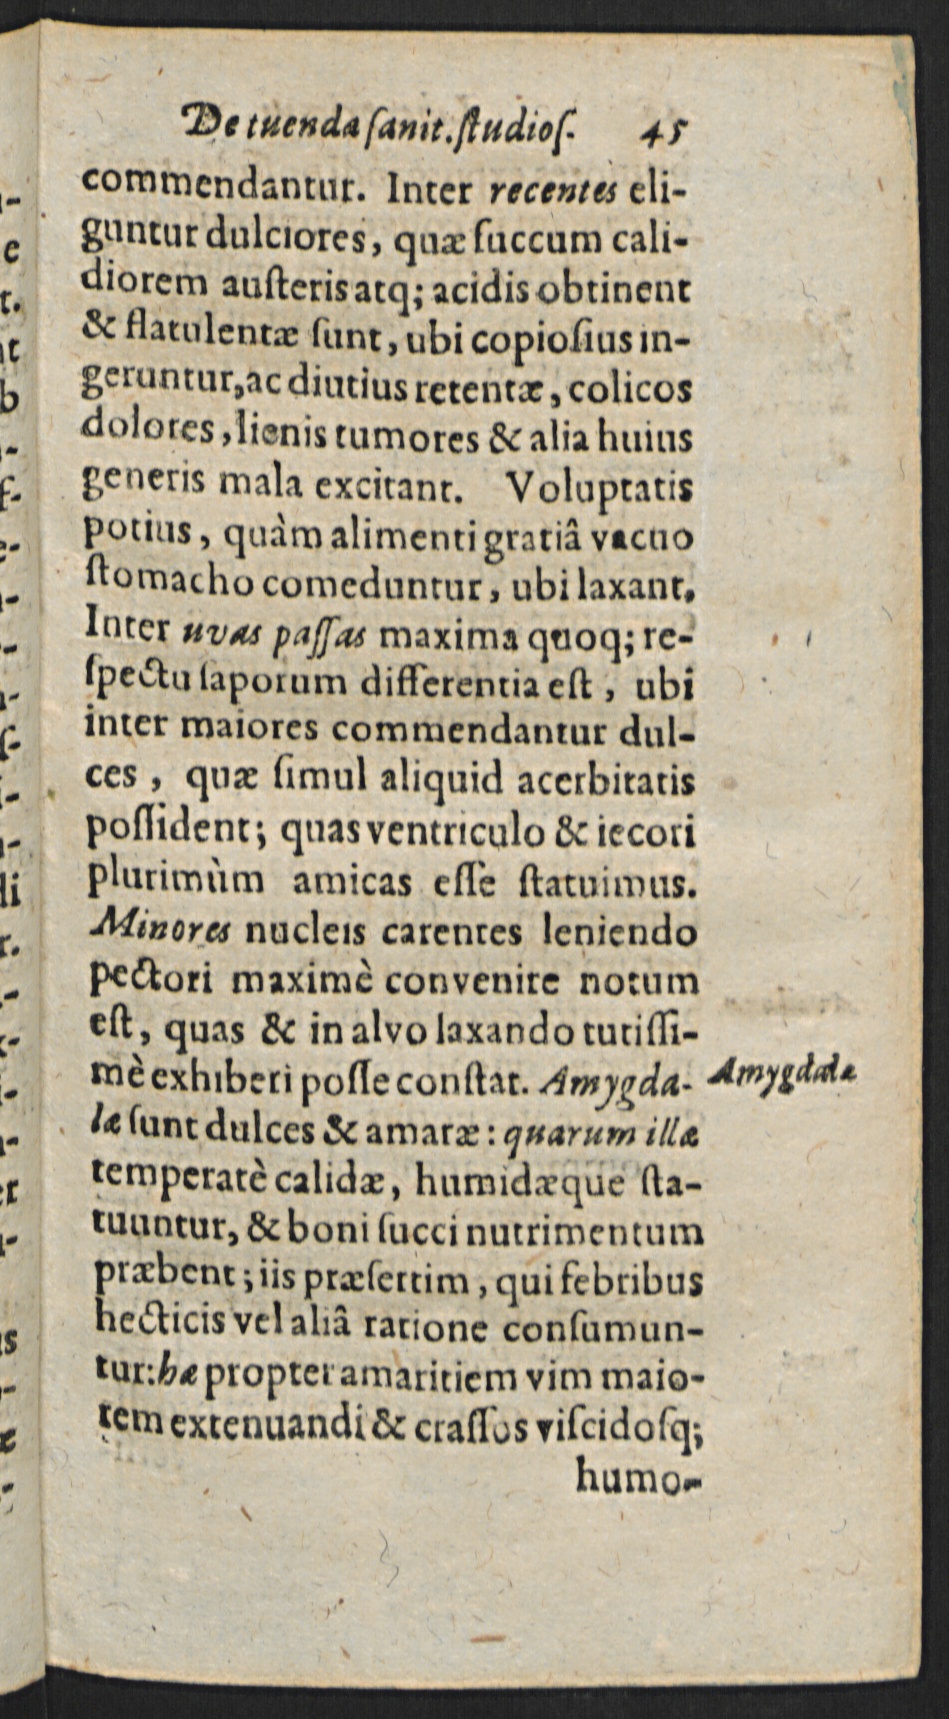 De tuenda ſanit. ſtudioſ. 45
commendantur. Inter recentes eli-
guntur dulciores, quæ ſuccum cali-
diorem auſteris atq; acidis obtinent
& flatulentæ ſunt, ubi copioſius in-
geruntur, ac diutius retentæ, colicos
dolores, lienis tumores & alia huius
generis mala excitant. Voluptatis
potius, quàm alimenti gratiâ vacuo
ſtomacho comeduntur, ubi laxant.
Inter uvas paſſas maxima quoq; re-
ſpectu ſaporum differentia eſt, ubi
inter maiores commendantur dul-
ces, quæ ſimul aliquid acerbitatis
poſſident; quas ventriculo & iecori
plurimùm amicas eſſe ſtatuimus.
Minores nucleis carentes leniendo
pectori maximè convenire notum
eſt, quas & in alvo laxando tutiſſi-
mè exhiberi poſſe conſtat. Amygda-
Amygdalæ
læ ſunt dulces & amaræ: quarum illæ
temperatè calidæ, humidæque ſta-
tuuntur, & boni ſucci nutrimentum
præbent; iis præſertim, qui febribus
hecticis vel aliâ ratione conſumun-
tur: hæ propter amaritiem vim maio-
rem extenuandi & craſſos viſcidoſq;
humo-